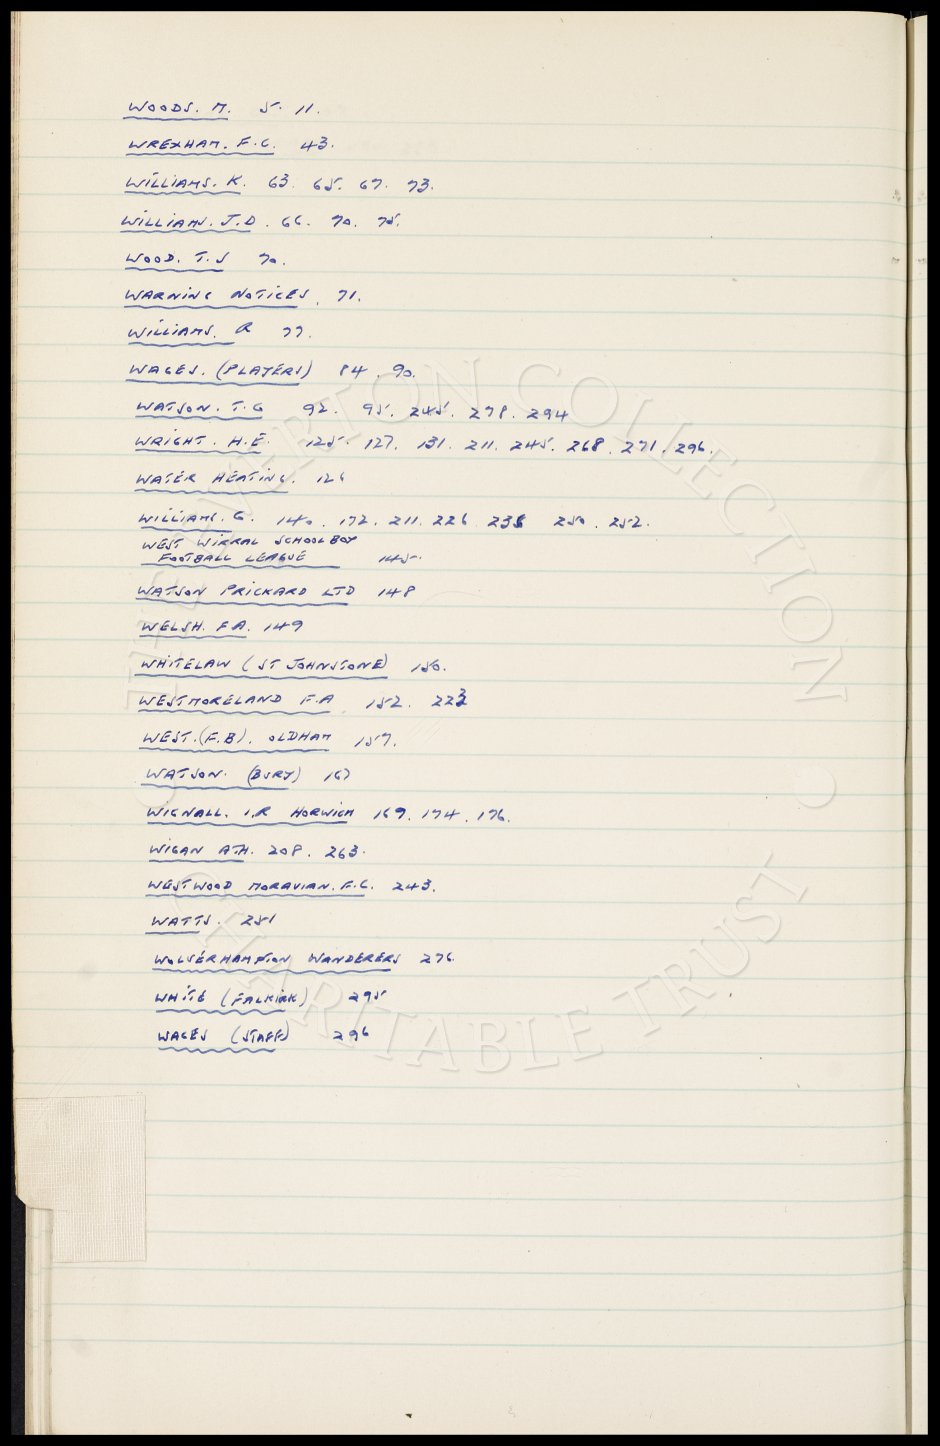 WOODS. M. 5. 11.
WREXHAM. F.C. 43.
WILLIAMS. K. 63. 65. 67. 73.
WILLIAMS. J.D. 66. 70. 75.
WOOD. T.S 70.
WARNING NOTICES. 71.
WILLIAMS. R 77.
WAGES. (PLAYERS) 84. 90.
WATSON. T.G 92. 95. 245. 278. 294
WRIGHT. H.E. 125. 127. 131. 211. 245. 268. 271. 296.
WATER HEATING. 126
WILLIAMS. G. 140. 172. 211. 226. 235 250. 252.
WEST WIRRAL SCHOOLBOY
FOOTBALL LEAGUE 145.
WATSON PRICKARD LTD 148
WELSH. F.A. 149
WHITELAW (ST JOHNSTONE) 150.
WESTMORELAND F.A. 152. 223
WEST. (F.B). OLDHAM 157.
WATSON. (BURY) 167
WIGNALL. I.R HORWICH 169. 174. 176.
WIGAN ATH. 208. 263.
WESTWOOD MORAVIAN. F.C. 243.
WATTS. 251
WOLVERHAMPTON WANDERERS 276.
WHITE (FALKIRK) 295
WAGES (STAFF) 296
THE EVERTON COLLECTION
CHARITABLE TRUST